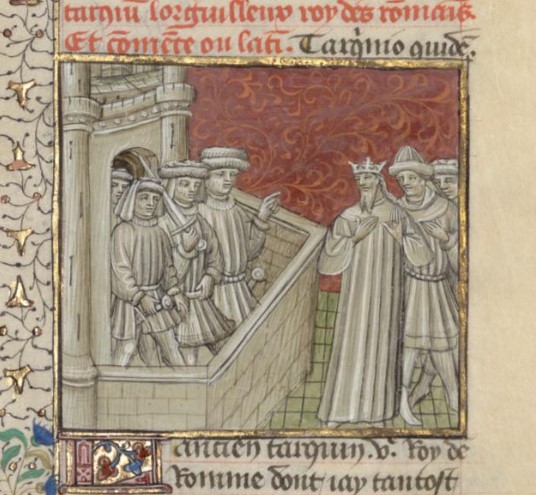 tarquin lorguilleux roy des rommais.
Et comẽce ou latĩ. Tarq̃nio quidẽ.
ancien tarquin .v. Roy de
Romme dont iay tantost